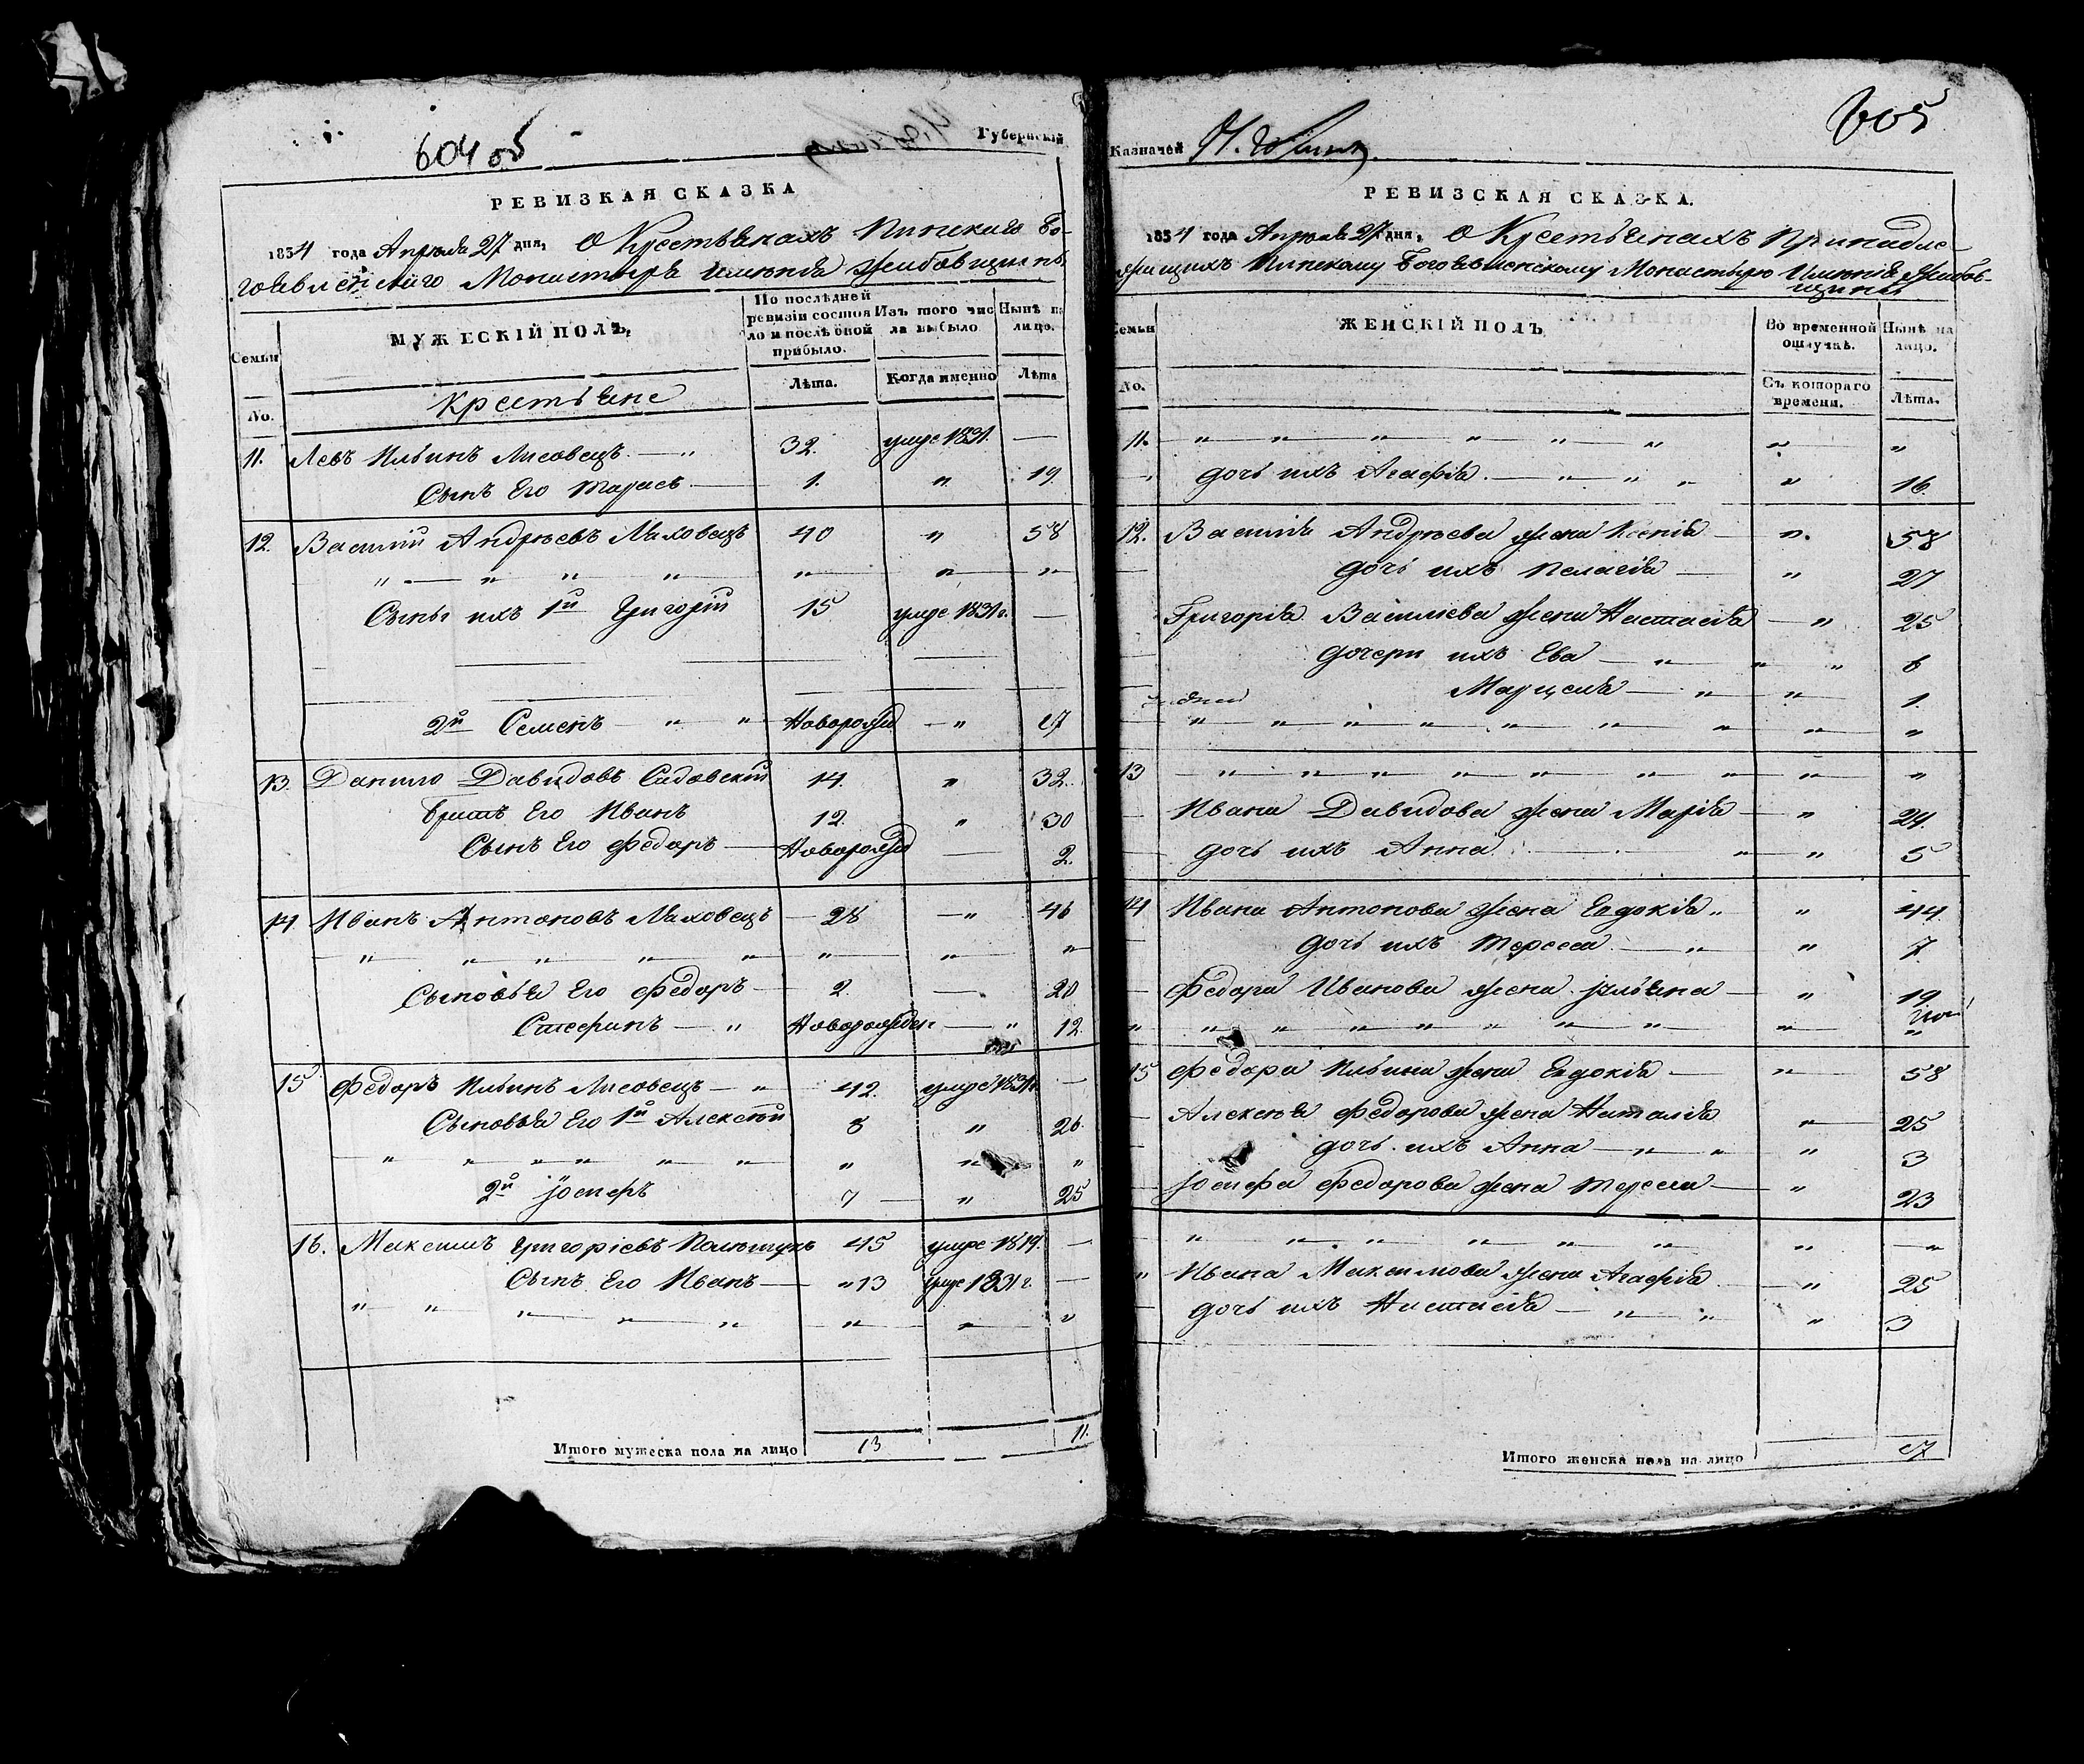 604 об
Губернскій
РЕВИЗКАЯ СКАЗКА
1834 года Апреля 27 дня, О Крестьянахъ Пинскаго Бо-
гоявленскаго Монастыря имѣнія
МУЖЕСКІЙ ПОЛЪ,
По послѣдней ревизіи состоя ло и послѣ оной прибыло.
Изъ того чис ла выбыло
Нынѣ на лицо.
Семьи
Лѣта.
Когда именно
Лѣта
No.
Крестьяне
11. Левъ Ильинъ Лисовецъ — „ 32. умре 1831. —
Сынъ Его Тарасъ — 1. „ 19.
12. Василій Андреевъ Маховецъ 40 „ 58
„ — „ „ „ „ „ „
Сыны ихъ 1й Григорій 15 умре 1831г. —
2й Семенъ — „ „ Новорожд — „ 17
13. Данило Давидовъ Садовскій 14. „ 32.
Братъ Его Иванъ 12. „ 30
Сынъ Его Федоръ — Новорожд — 2.
14. Иванъ Антоновъ Маховецъ — 28 — „ 46
— „ „ „ „ „ „ „ „
Сыновья Его Федоръ — 2. — 20
Стефанъ — „ Новорожден — „ 12.
15. Федоръ Ильинъ Лисовецъ — „ 42. умре 1831г. —
Сыновья Его 1й Алексѣй 8 „ 26.
— „ „ „ „ „ „ „ „ „
2й Іосифъ 7 — „ 25
16. Максимъ Григоріевъ Полещукъ 45 умре 1819. —
Сынъ Его Иванъ — „ 13 умре 1831г. —
„ „ „ „ „ „ „ „
Итого мужеска пола на лицо 13 11.
Казначей
605
РЕВИЗСКАЯ СКАЗКА.
1834 года Апреля 27 дня, О Крестьянахъ Принадле-
жащихъ Пинскому Богоявленскому Монастырю Имѣнія
щины
Семьи
ЖЕНСКІЙ ПОЛЪ
Во временной отлучкѣ.
Нынѣ на лицо.
No.
Съ котораго времени.
Лѣта.
11. — „ „ „ „ „ „ „ „
дочь ихъ Агафія. — „ „ „ „ 16.
12. Василія Андреева жена Ксенія — „ 58
дочь ихъ Пелагія — „ 27
Григорія Васильева жена Настасія — „ 25
дочери ихъ Ева — „ „ „ 6
Марцеля — „ „ 1.
„ „ „ „ „ „ „ „ „
13 — „ „ „ „ „ „ „ „ „
Ивана Давидова жена Марія — „ 24.
дочь ихъ Анна „ „ 5
14 Ивана Антонова жена Евдокія „ „ 44.
дочь ихъ Тереса — „ „ 7.
Федора Иванова жена Ульяна — „ 19
„ „ „ „ „ „ „ „ „ „
15 Федора Ильина жена Евдокія — „ 58
Алексѣя Федорова жена Наталія „ 25
дочь ихъ Анна — „ „ „ 3
Іосифа Федорова жена Тереса — „ 23
„ „ „ „ „ „ „ „
„ Ивана Максимова жена Агафія — „ 25
дочь ихъ Настасія — „ „ „ 3
Итого женска пола на лицо 17